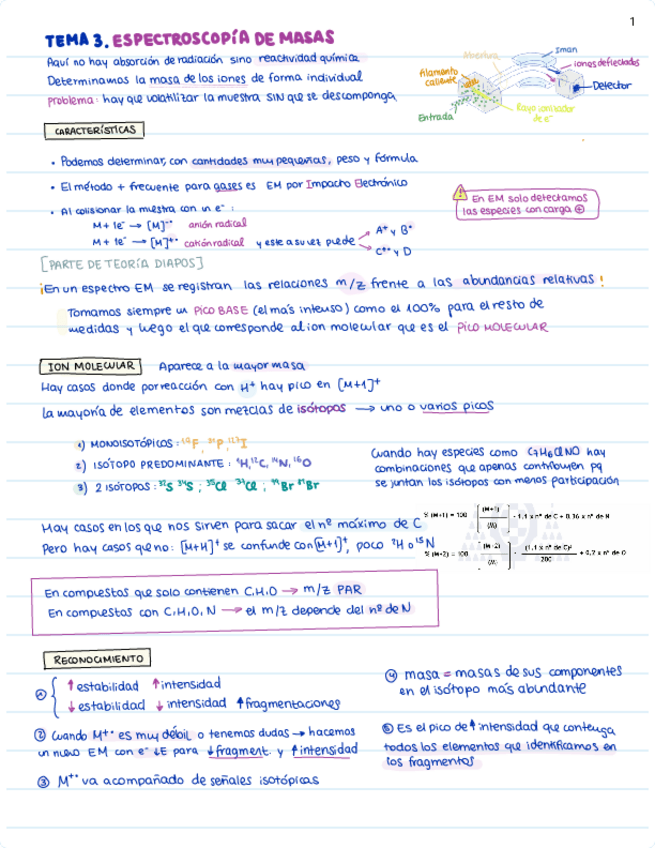 1
TEMA 3. ESPECTROSCOPÍA DE MASAS
Aquí no hay absorción de radiación sino reactividad química
Determinamos la masa de los iones de forma individual
problema: hay que volatilizar la muestra SIN que se descomponga
Abertura
Iman
iones deflectados
filamento
caliente
Detector
Entrada
Rayo ionizador
de e⁻
CARACTERÍSTICAS
• Podemos determinar, con cantidades muy pequeñas, peso y fórmula
• El método + frecuente para gases es EM por Impacto Electrónico
• Al colisionar la muestra con un e⁻ :
M + 1e⁻ → [M]⁻• anión radical
M + 1e⁻ → [M]⁺• catión radical y este a su vez puede
A⁺ y B•
C⁺• y D
En EM solo detectamos
las especies con carga ⊕
[PARTE DE TEORÍA DIAPOS]
¡En un espectro EM se registran las relaciones m/z frente a las abundancias relativas!
Tomamos siempre un PICO BASE (el más intenso) como el 100% para el resto de
medidas y luego el que corresponde al ion molecular que es el PICO MOLECULAR
ION MOLECULAR Aparece a la mayor masa
Hay casos donde por reacción con H⁺ hay pico en [M+1]⁺
La mayoría de elementos son mezclas de isótopos → uno o varios picos
1) MONOISOTÓPICOS: ¹⁹F, ³¹P, ¹²⁷I
2) ISÓTOPO PREDOMINANTE: ¹H, ¹²C, ¹⁴N, ¹⁶O
3) 2 ISÓTOPOS: ³²S ³⁴S ; ³⁵Cl ³⁷Cl ; ⁷⁹Br ⁸¹Br
Cuando hay especies como C₇H₆ClNO hay
combinaciones que apenas contribuyen pq
se juntan los isótopos con menos participación
Hay casos en los que nos sirven para sacar el nº máximo de C
Pero hay casos que no: [M+H]⁺ se confunde con [M+1]⁺, poco ²H o ¹⁵N
% (M+1) = 100 [(M+1) / (M)] = 1,1 x nº de C + 0.36 x nº de N
% (M+2) = 100 [(M+2) / (M)] = (1,1 x nº de C)² / 200 + 0,2 x nº de O
En compuestos que solo contienen C,H,O → m/z PAR
En compuestos con C,H,O,N → el m/z depende del nº de N
RECONOCIMIENTO
① ↑ estabilidad ↑ intensidad
↓ estabilidad ↓ intensidad ↑ fragmentaciones
② Cuando M⁺• es muy débil o tenemos dudas → hacemos
un nuevo EM con e⁻ ↓E para ↓ fragment. y ↑ intensidad
③ M⁺• va acompañado de señales isotópicas
④ masa = masas de sus componentes
en el isótopo más abundante
⑤ Es el pico de ↑ intensidad que contenga
todos los elementos que identificamos en
los fragmentos